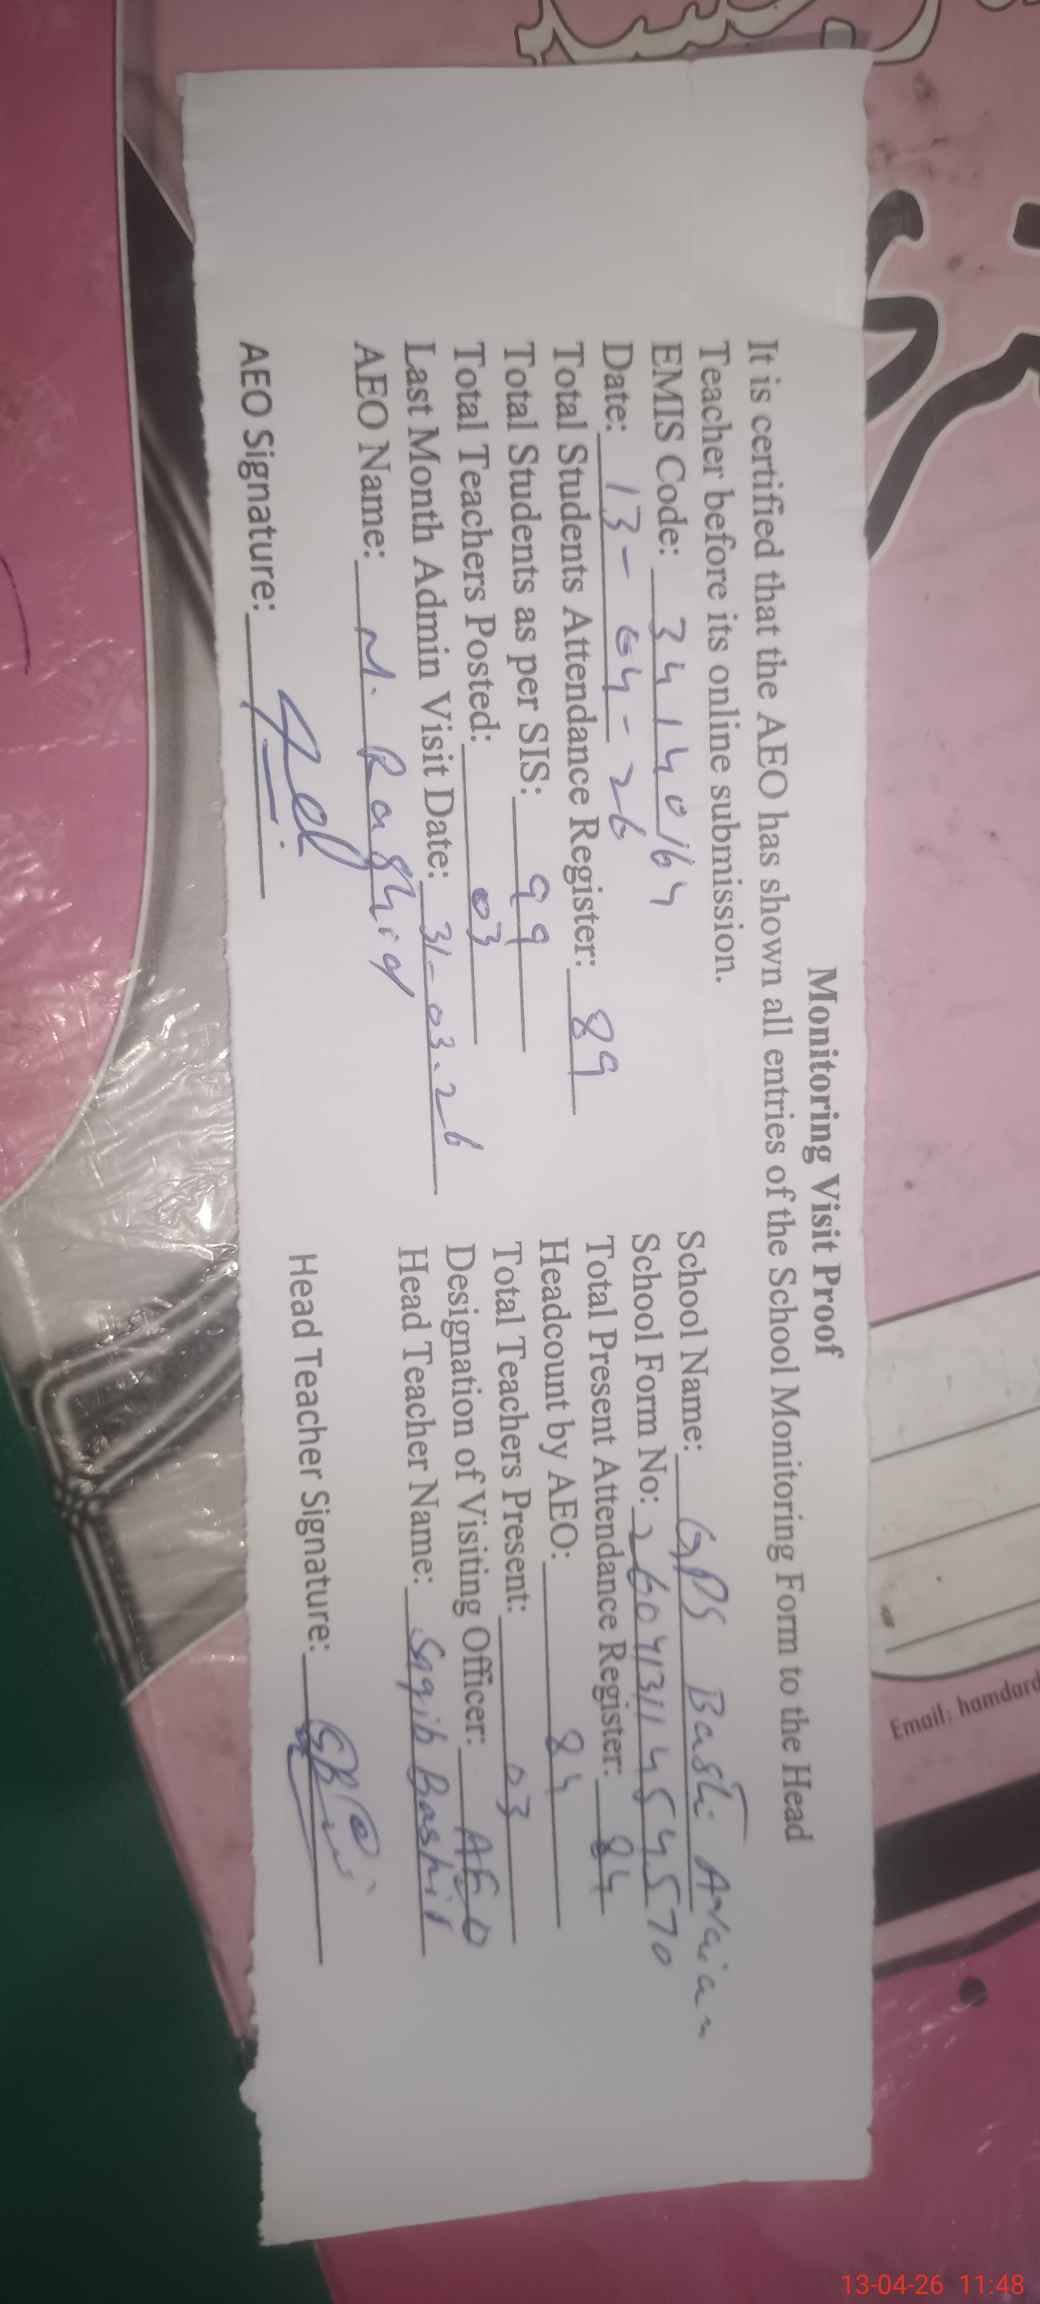 Monitoring Visit Proof
It is certified that the AEO has shown all entries of the School Monitoring Form to the Head
Teacher before its online submission.
EMIS Code: 34140164
School Name: GPS Basti Araian
Date: 13-04-26
School Form No: 26041311454570
Total Students Attendance Register: 89
Total Present Attendance Register: 84
Total Students as per SIS: 99
Headcount by AEO: 84
Total Teachers Posted: 03
Total Teachers Present: 03
Last Month Admin Visit Date: 31-03-26
Designation of Visiting Officer: AEO
AEO Name: M. Rashid
Head Teacher Name: Saqib Bashir
AEO Signature:
Head Teacher Signature:
Email: hamdard
13-04-26 11:48